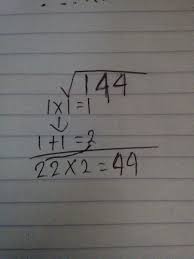 √144
1×1=1
↓
1+1=2
22×2=44